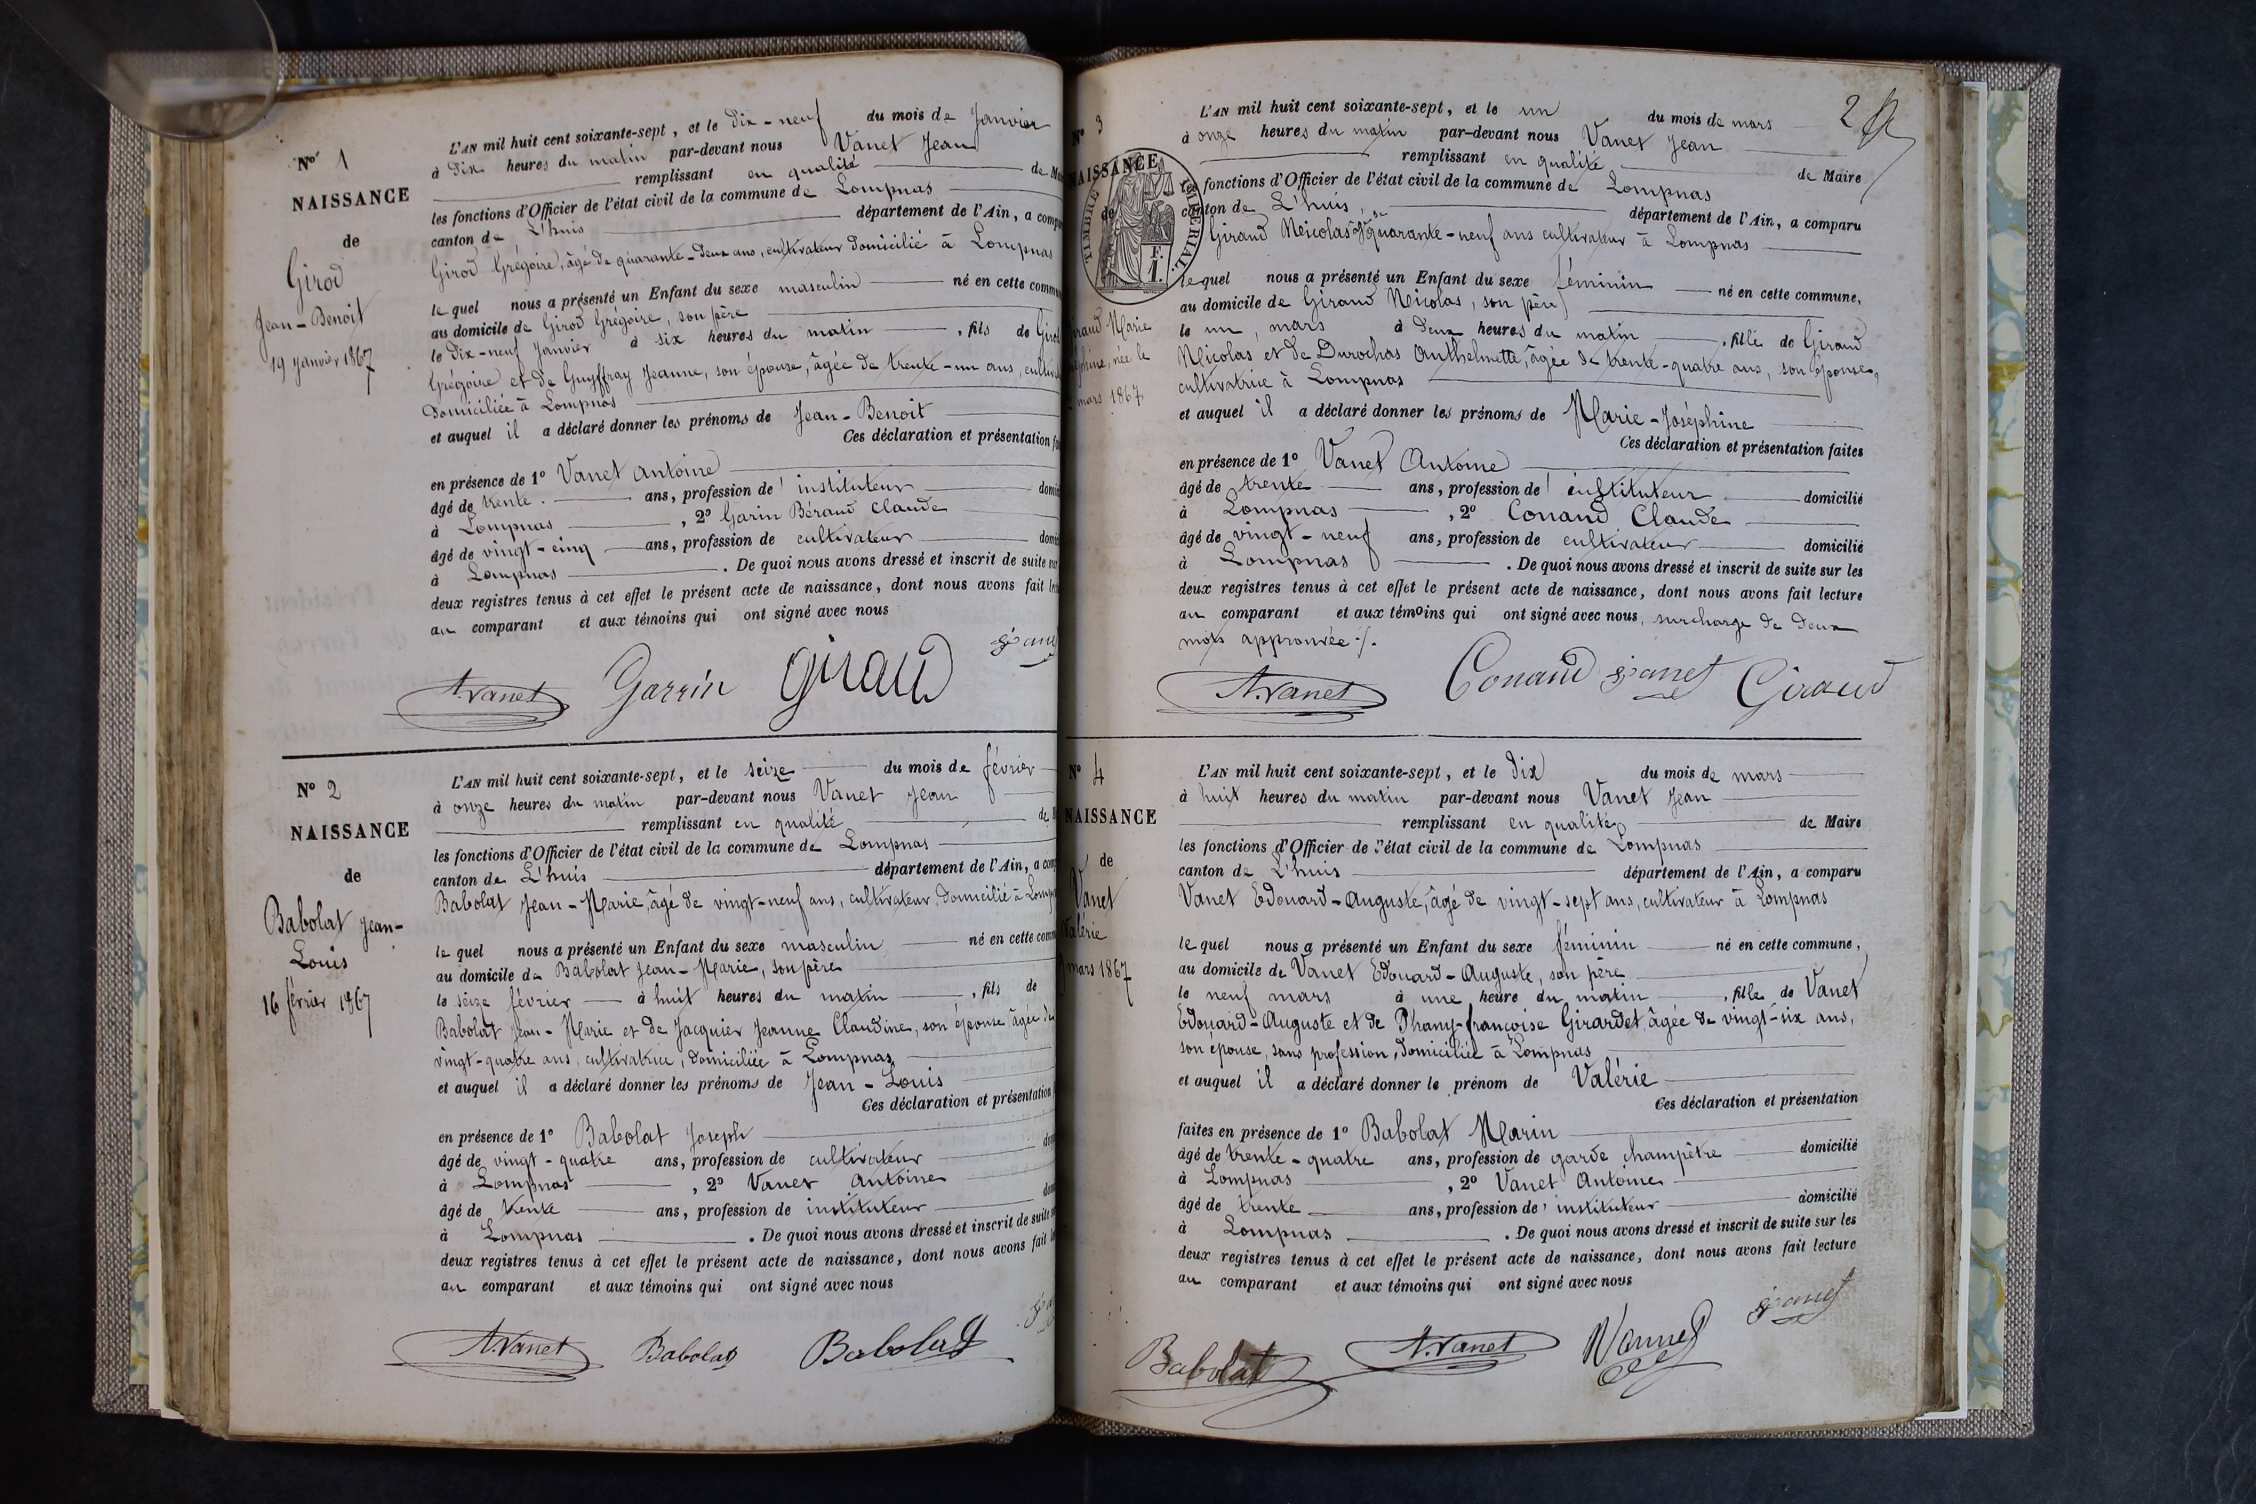 N° 1
NAISSANCE
de
Girod
Jean-Benoit
19 janvier 1867
L'AN mil huit cent soixante-sept, et le dix-neuf du mois de Janvier
à dix heures du matin par-devant nous Vanet Jean
remplissant en qualité de
les fonctions d'Officier de l'état civil de la commune de Lompnas
canton de L'huis département de l'Ain, a
Girod Grégoire, âgé de quarante-deux ans, cultivateur domicilié à Lompnas
le quel nous a présenté un Enfant du sexe masculin né en cette
au domicile de Girod Grégoire, son père
le dix-neuf Janvier à six heures du matin, fils de
Grégoire et de Guyffray Jeanne, son épouse, âgée de trente-un ans,
domiciliée à Lompnas
et auquel il a déclaré donner les prénoms de Jean-Benoit
Ces déclaration et présentation
en présence de 1° Vanet Antoine
âgé de trente ans, profession d' instituteur
à Lompnas, 2° Garin Béraud Claude
âgé de vingt-cinq ans, profession de cultivateur
à Lompnas. De quoi nous avons dressé et inscrit de suite
deux registres tenus à cet effet le présent acte de naissance, dont nous avons fait
au comparant et aux témoins qui ont signé avec nous
A. Vanet Garrin Giraud
N° 2
NAISSANCE
de
Babolat Jean-
Louis
16 février 1867
L'AN mil huit cent soixante-sept, et le seize du mois de février
à onze heures du matin par-devant nous Vanet Jean
remplissant en qualité de
les fonctions d'Officier de l'état civil de la commune de Lompnas
canton de L'huis département de l'Ain, a
Babolat Jean-Marie, âgé de vingt-neuf ans, cultivateur, domicilié à
le quel nous a présenté un Enfant du sexe masculin né en cette
au domicile de Babolat Jean-Marie, son père
le seize février à huit heures du matin, fils de
Babolat Jean-Marie et de Jacquier Jeanne Claudine, son épouse âgée de
vingt-quatre ans, cultivatrice, domiciliée à Lompnas,
et auquel il a déclaré donner les prénoms de Jean-Louis
Ces déclaration et présentation
en présence de 1° Babolat Joseph
âgé de vingt-quatre ans, profession de cultivateur
à Lompnas, 2° Vanet Antoine
âgé de trente ans, profession de instituteur
à Lompnas. De quoi nous avons dressé et inscrit de suite
deux registres tenus à cet effet le présent acte de naissance, dont nous avons fait
au comparant et aux témoins qui ont signé avec nous
A. Vanet Babolat Babolat
2
N° 3
NAISSANCE
de
TIMBRE IMPÉRIAL
1 F.
Marie
née le
mars 1867
L'AN mil huit cent soixante-sept, et le un du mois de mars
à onze heures du matin par-devant nous Vanet Jean
remplissant en qualité de Maire
les fonctions d'Officier de l'état civil de la commune de Lompnas
canton de L'huis, département de l'Ain, a comparu
Giraud Nicolas âgé de quarante-neuf ans cultivateur à Lompnas
le quel nous a présenté un Enfant du sexe féminin né en cette commune,
au domicile de Giraud Nicolas, son père
le un, mars à deux heures du matin, fille de Giraud
Nicolas et de Durochas Anthelmette, âgée de trente-quatre ans, son épouse,
cultivatrice à Lompnas
et auquel il a déclaré donner les prénoms de Marie-Joséphine
Ces déclaration et présentation faites
en présence de 1° Vanet Antoine
âgé de trente ans, profession d' instituteur domicilié
à Lompnas, 2° Conand Claude
âgé de vingt-neuf ans, profession de cultivateur domicilié
à Lompnas. De quoi nous avons dressé et inscrit de suite sur les
deux registres tenus à cet effet le présent acte de naissance, dont nous avons fait lecture
au comparant et aux témoins qui ont signé avec nous, surcharge de deux
mots approuvée ./.
A. Vanet Conand Vanet Giraud
N° 4
NAISSANCE
de
Vanet
Valérie
mars 1867
L'AN mil huit cent soixante-sept, et le dix du mois de mars
à huit heures du matin par-devant nous Vanet Jean
remplissant en qualité de Maire
les fonctions d'Officier de l'état civil de la commune de Lompnas
canton de L'huis département de l'Ain, a comparu
Vanet Edouard-Auguste, âgé de vingt-sept ans, cultivateur à Lompnas
le quel nous a présenté un Enfant du sexe féminin né en cette commune,
au domicile de Vanet Edouard-Auguste, son père
le neuf mars à une heure du matin, fille de Vanet
Edouard-Auguste et de Phany-françoise Girardet âgée de vingt-six ans,
son épouse, sans profession, domiciliée à Lompnas
et auquel il a déclaré donner le prénom de Valérie
Ces déclaration et présentation
faites en présence de 1° Babolat Marin
âgé de trente-quatre ans, profession de garde champêtre domicilié
à Lompnas, 2° Vanet Antoine
âgé de trente ans, profession d' instituteur domicilié
à Lompnas. De quoi nous avons dressé et inscrit de suite sur les
deux registres tenus à cet effet le présent acte de naissance, dont nous avons fait lecture
au comparant et aux témoins qui ont signé avec nous
Babolat A. Vanet Vannet Vanet